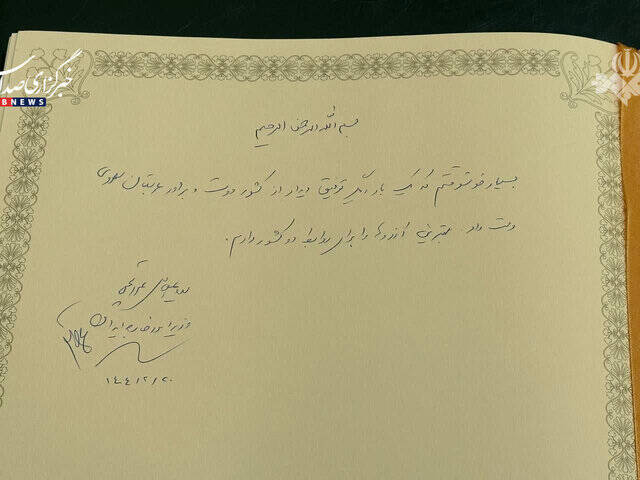 خبرگزاری صدا
IBNEWS
بسم الله الرحمن الرحیم
بسیار خوشوقتم که یک بار دیگر توفیق دیدار از کشور دوست و برادر عربستان سعودی
دست داد. بهترین آرزوها را برای روابط دو کشور دارم.
سید عباس عراقچی
وزیر امور خارجه ایران
۱۴۰۴/۲/۲۰